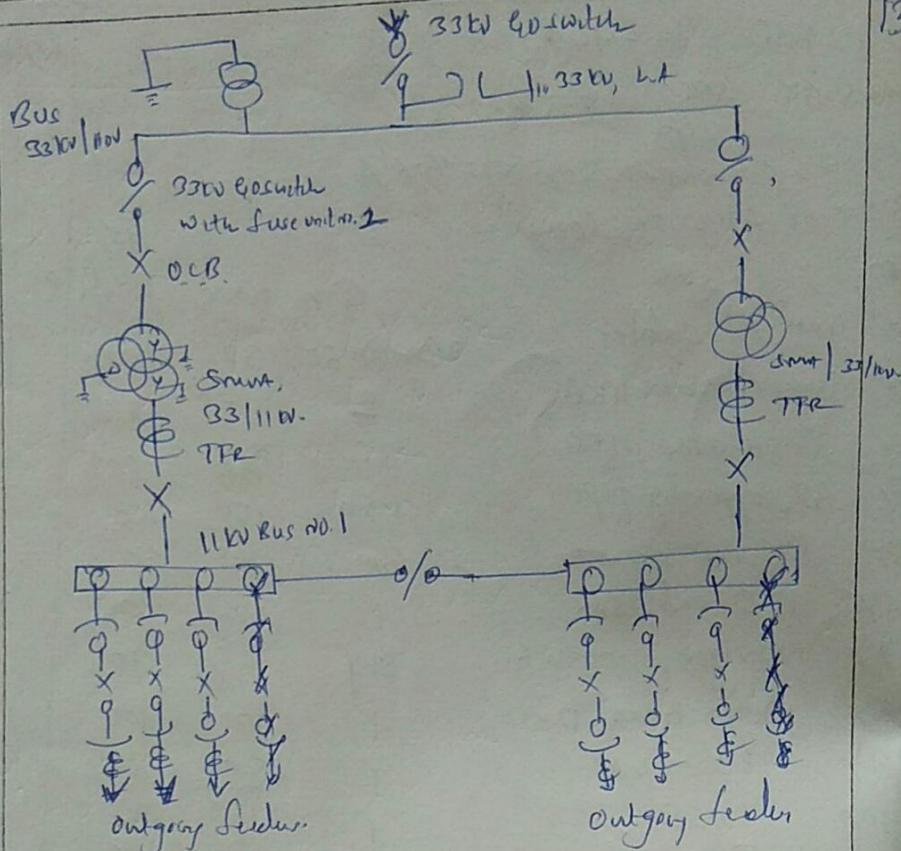 33kV GO switch
33kV, L.A
BUS
33kV/110V
33kV GO switch
with fuse unit no. 1
O.C.B.
Y
D
Y
5MVA,
33/11kV.
TFR
5MVA/33/11kV.
TFR
11KV BUS NO. 1
Outgoing feeders.
Outgoing feeder